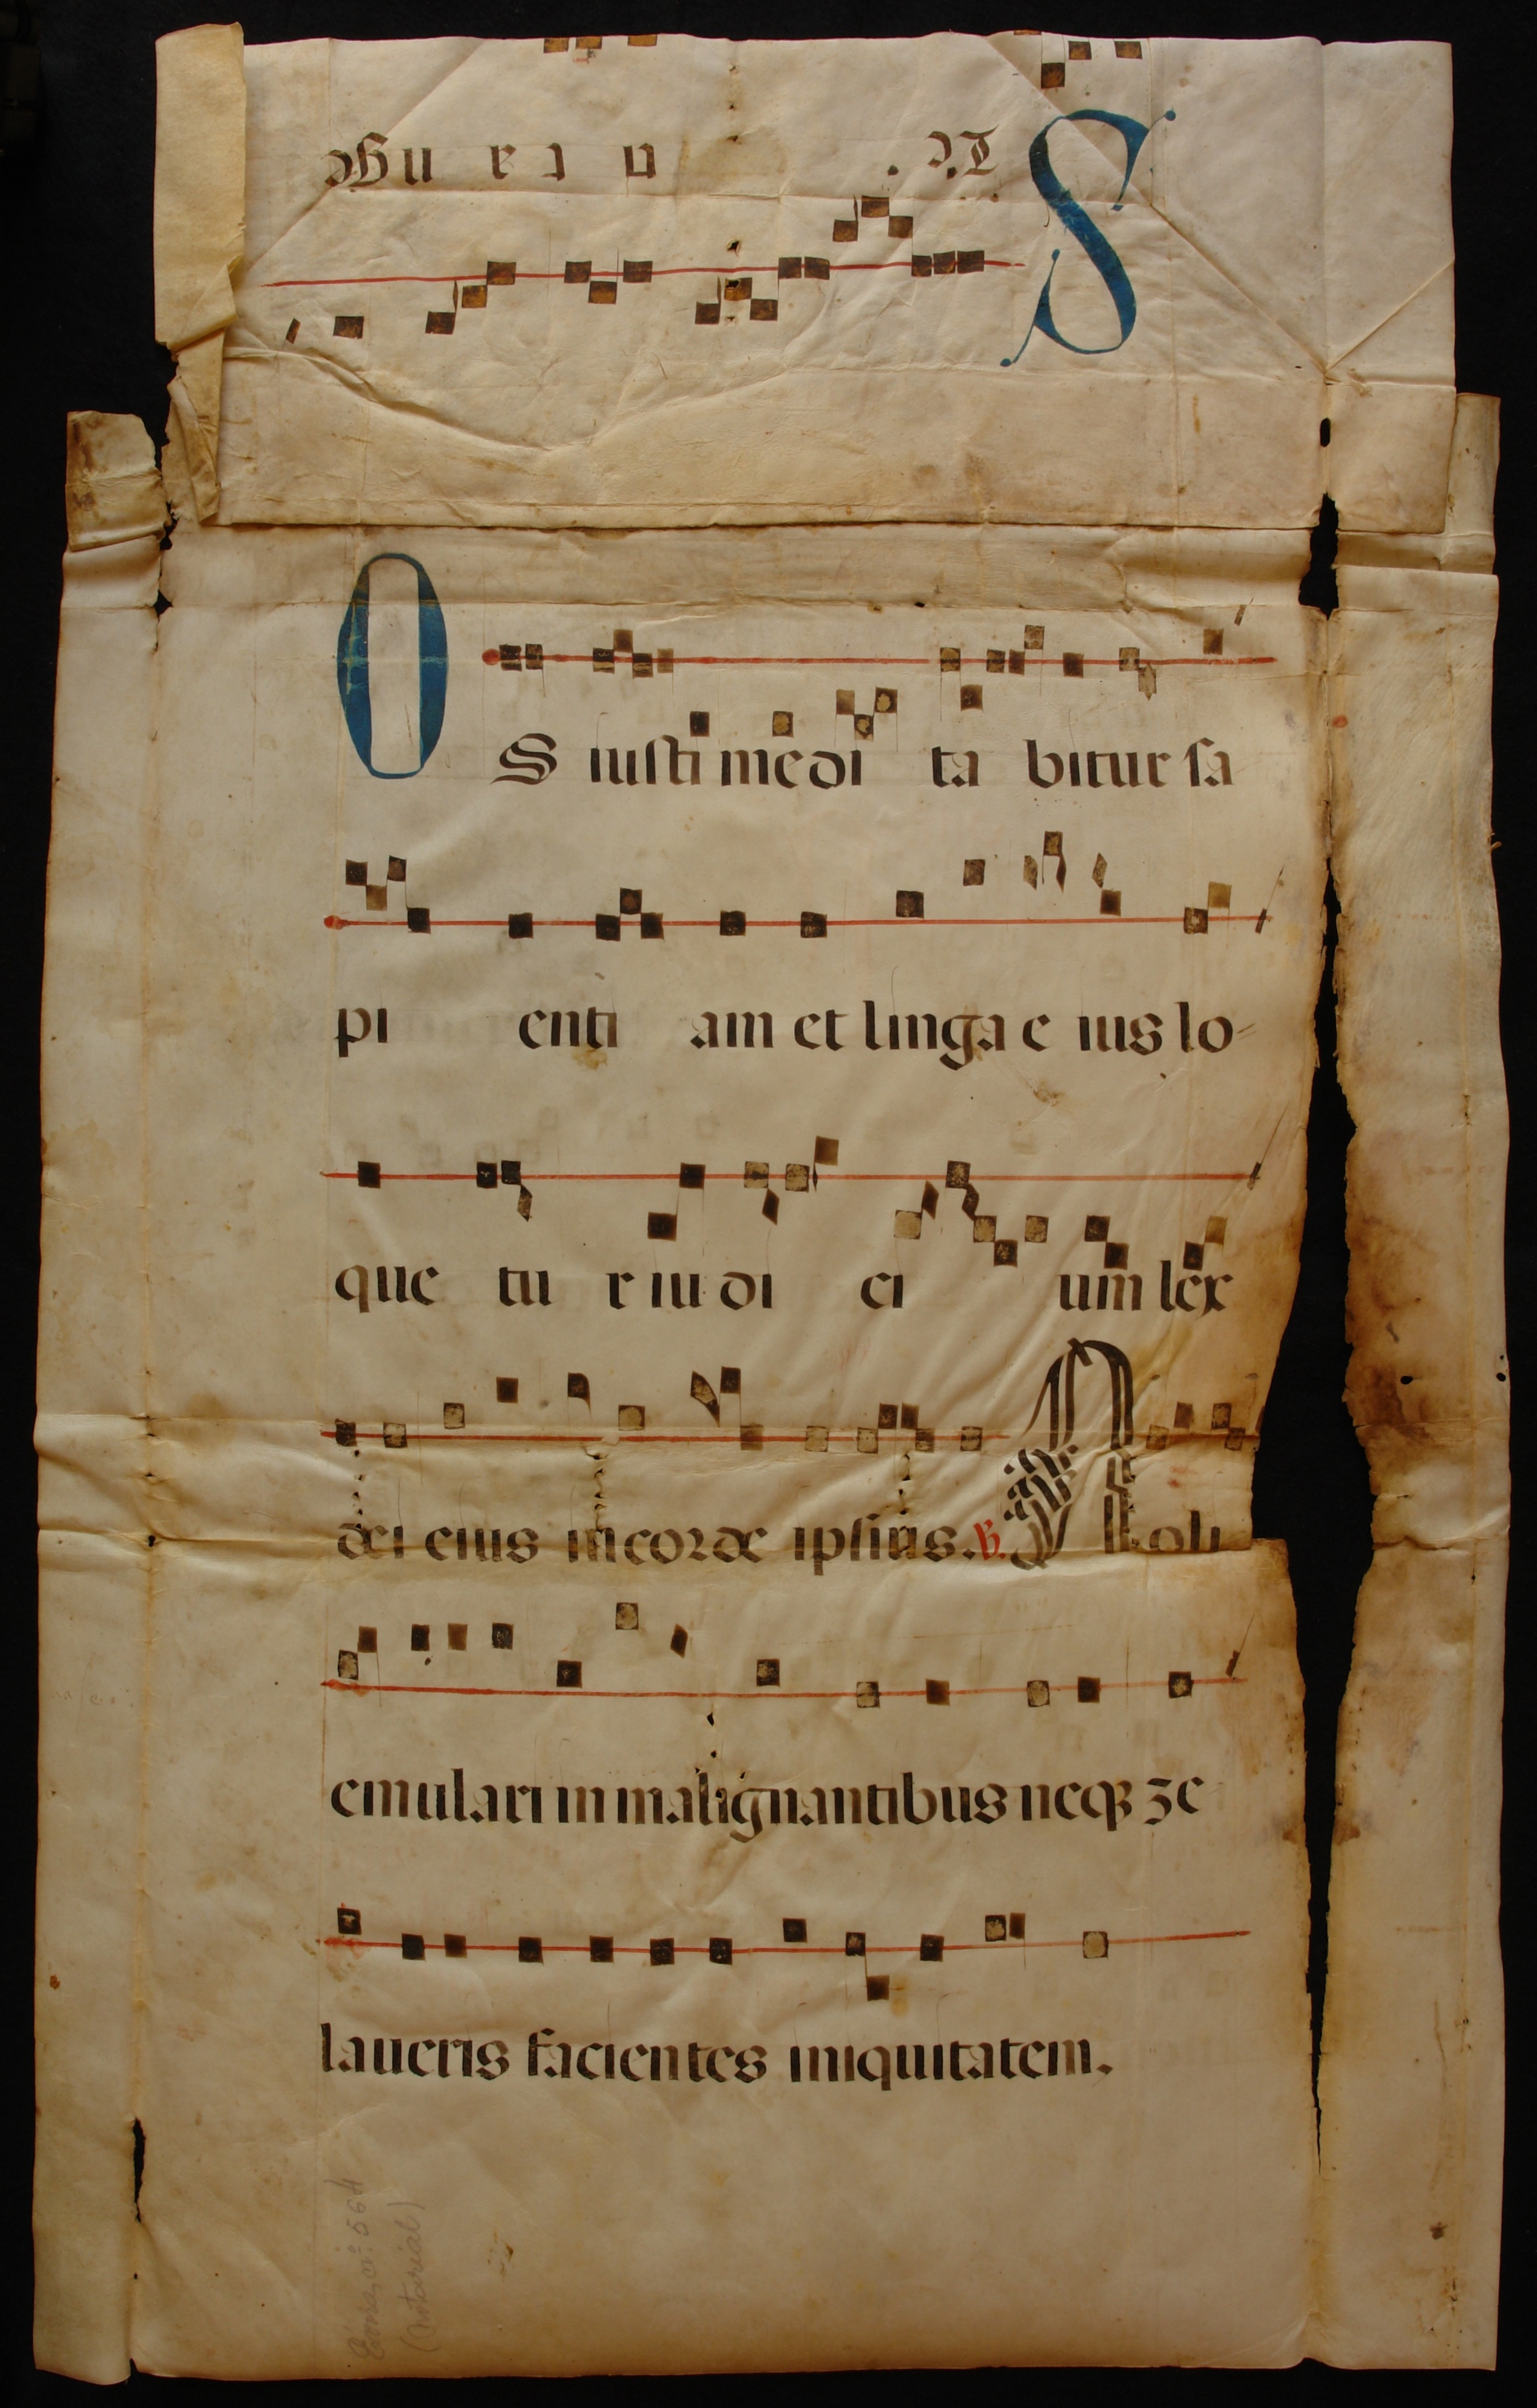 S
OS iusti medi ta bitur sa
pi enti am et linga e ius lo-
que tu r iu di ci um lex
dei eius in corde ipsius. V. Noli
emulari in malignantibus neqꝫ ze
laueris facientes iniquitatem.
Évora, nº 564
(notarial)